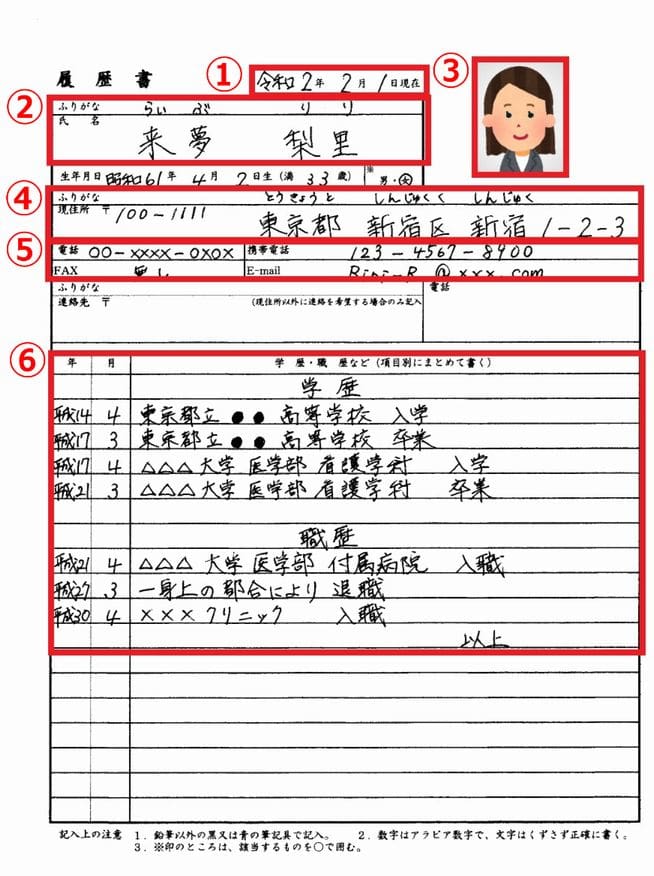 履歴書 ① 令和2年 2月 1日現在 ③
② ふりがな らいぶ りり
氏名 来夢 梨里
生年月日 昭和61年 4月 2日生 (満 33歳) ※ 男・女
④ ふりがな とうきょうと しんじゅくく しんじゅく
現住所 〒100-1111 東京都 新宿区 新宿 1-2-3
⑤ 電話 00-xxxx-0x0x 携帯電話 123-4567-8900
FAX 無し E-mail Riri-R@xxx.com
ふりがな 電話
連絡先 〒 (現住所以外に連絡を希望する場合のみ記入
⑥ 年 月 学歴・職歴など (項目別にまとめて書く)
学歴
平成14 4 東京都立●●高等学校 入学
平成17 3 東京都立●●高等学校 卒業
平成17 4 △△△大学 医学部 看護学科 入学
平成21 3 △△△大学 医学部 看護学科 卒業
職歴
平成21 4 △△△大学 医学部 付属病院 入職
平成27 3 一身上の都合により 退職
平成30 4 ×××クリニック 入職
以上
記入上の注意 1.鉛筆以外の黒又は青の筆記具で記入。 2.数字はアラビア数字で、文字はくずさず正確に書く。
3.※印のところは、該当するものを○で囲む。